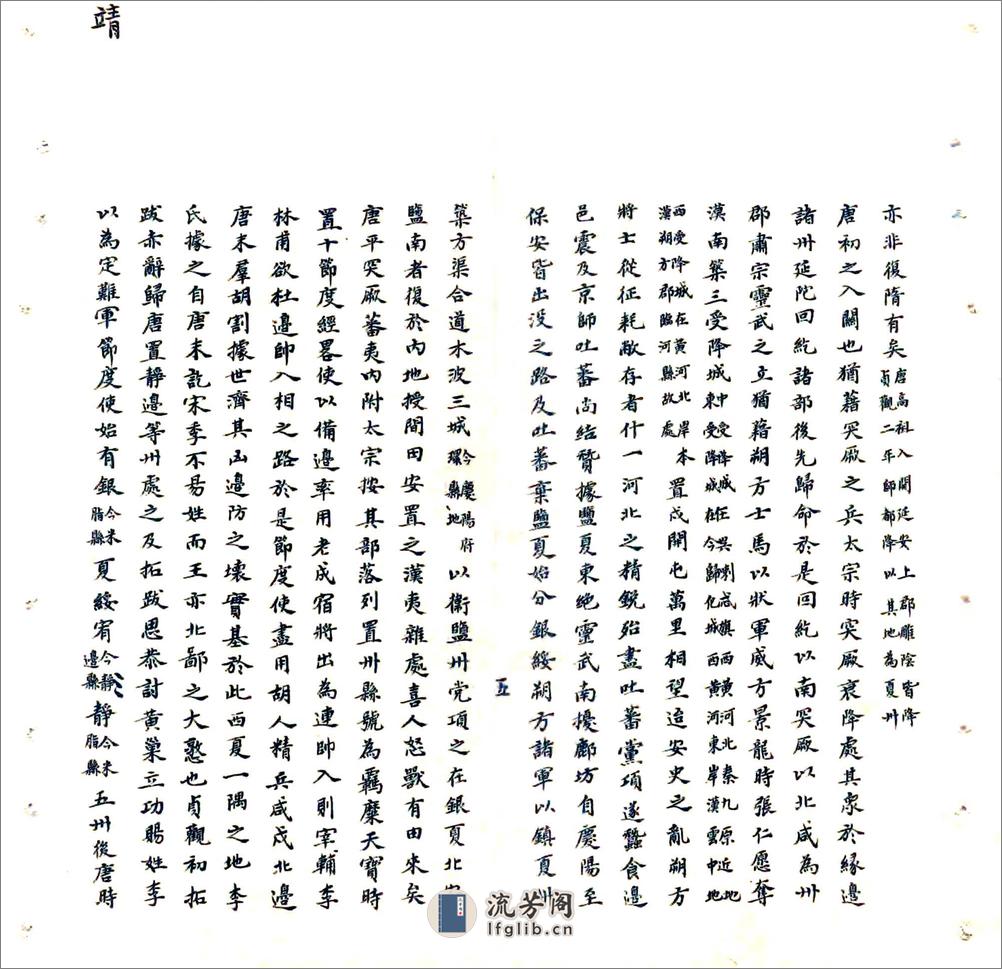 靖
亦非復隋有矣唐高祖入關延安上郡雕陰皆降貞觀二年師都降以其地為夏州
唐初之入關也猶藉突厥之兵太宗時突厥衰降處其衆於緣邊
諸州延陀回紇諸部後先歸命於是回紇以南突厥以北咸為州
郡肅宗靈武之立猶藉朔方士馬以狀軍威方景龍時張仁愿奪
漠南築三受降城中受降城在吳喇忒旗西黃河北秦九原近地東受降城在今歸化城西黃河東岸漢雲中地
西受降城在黃河北岸漢朔方郡臨河縣故處本置戍開屯萬里相望迨安史之亂朔方
將士從征耗敝存者什一河北之精銳殆盡吐蕃黨項遂蠶食邊
邑震及京師吐蕃尚結贊據鹽夏東絶靈武南擾鄜坊自慶陽至
保安皆出没之路及吐蕃棄鹽夏始分銀綏朔方諸軍以鎮夏州
五
築方渠合道木波三城今慶陽府環縣地以衛鹽州党項之在銀夏北安
鹽南者復於内地授閒田安置之漢夷雜處喜人怒獸有由來矣
唐平突厥蕃夷内附太宗按其部落列置州縣號為羈縻天寶時
置十節度經畧使以備邊率用老成宿將出為連帥入則宰輔李
林甫欲杜邊帥入相之路於是節度使盡用胡人精兵咸戍北邊
唐末羣胡割據世濟其凶邊防之壞實基於此西夏一隅之地李
氏據之自唐末訖宋季不易姓而王亦北鄙之大憝也貞觀初拓
跋赤辭歸唐置靜邊等州處之及拓跋思恭討黃巢立功賜姓李
以為定難軍節度使始有銀今米脂縣夏綏宥今靜邊縣靜今米脂縣五州後唐時
流芳阁
lfglib.cn